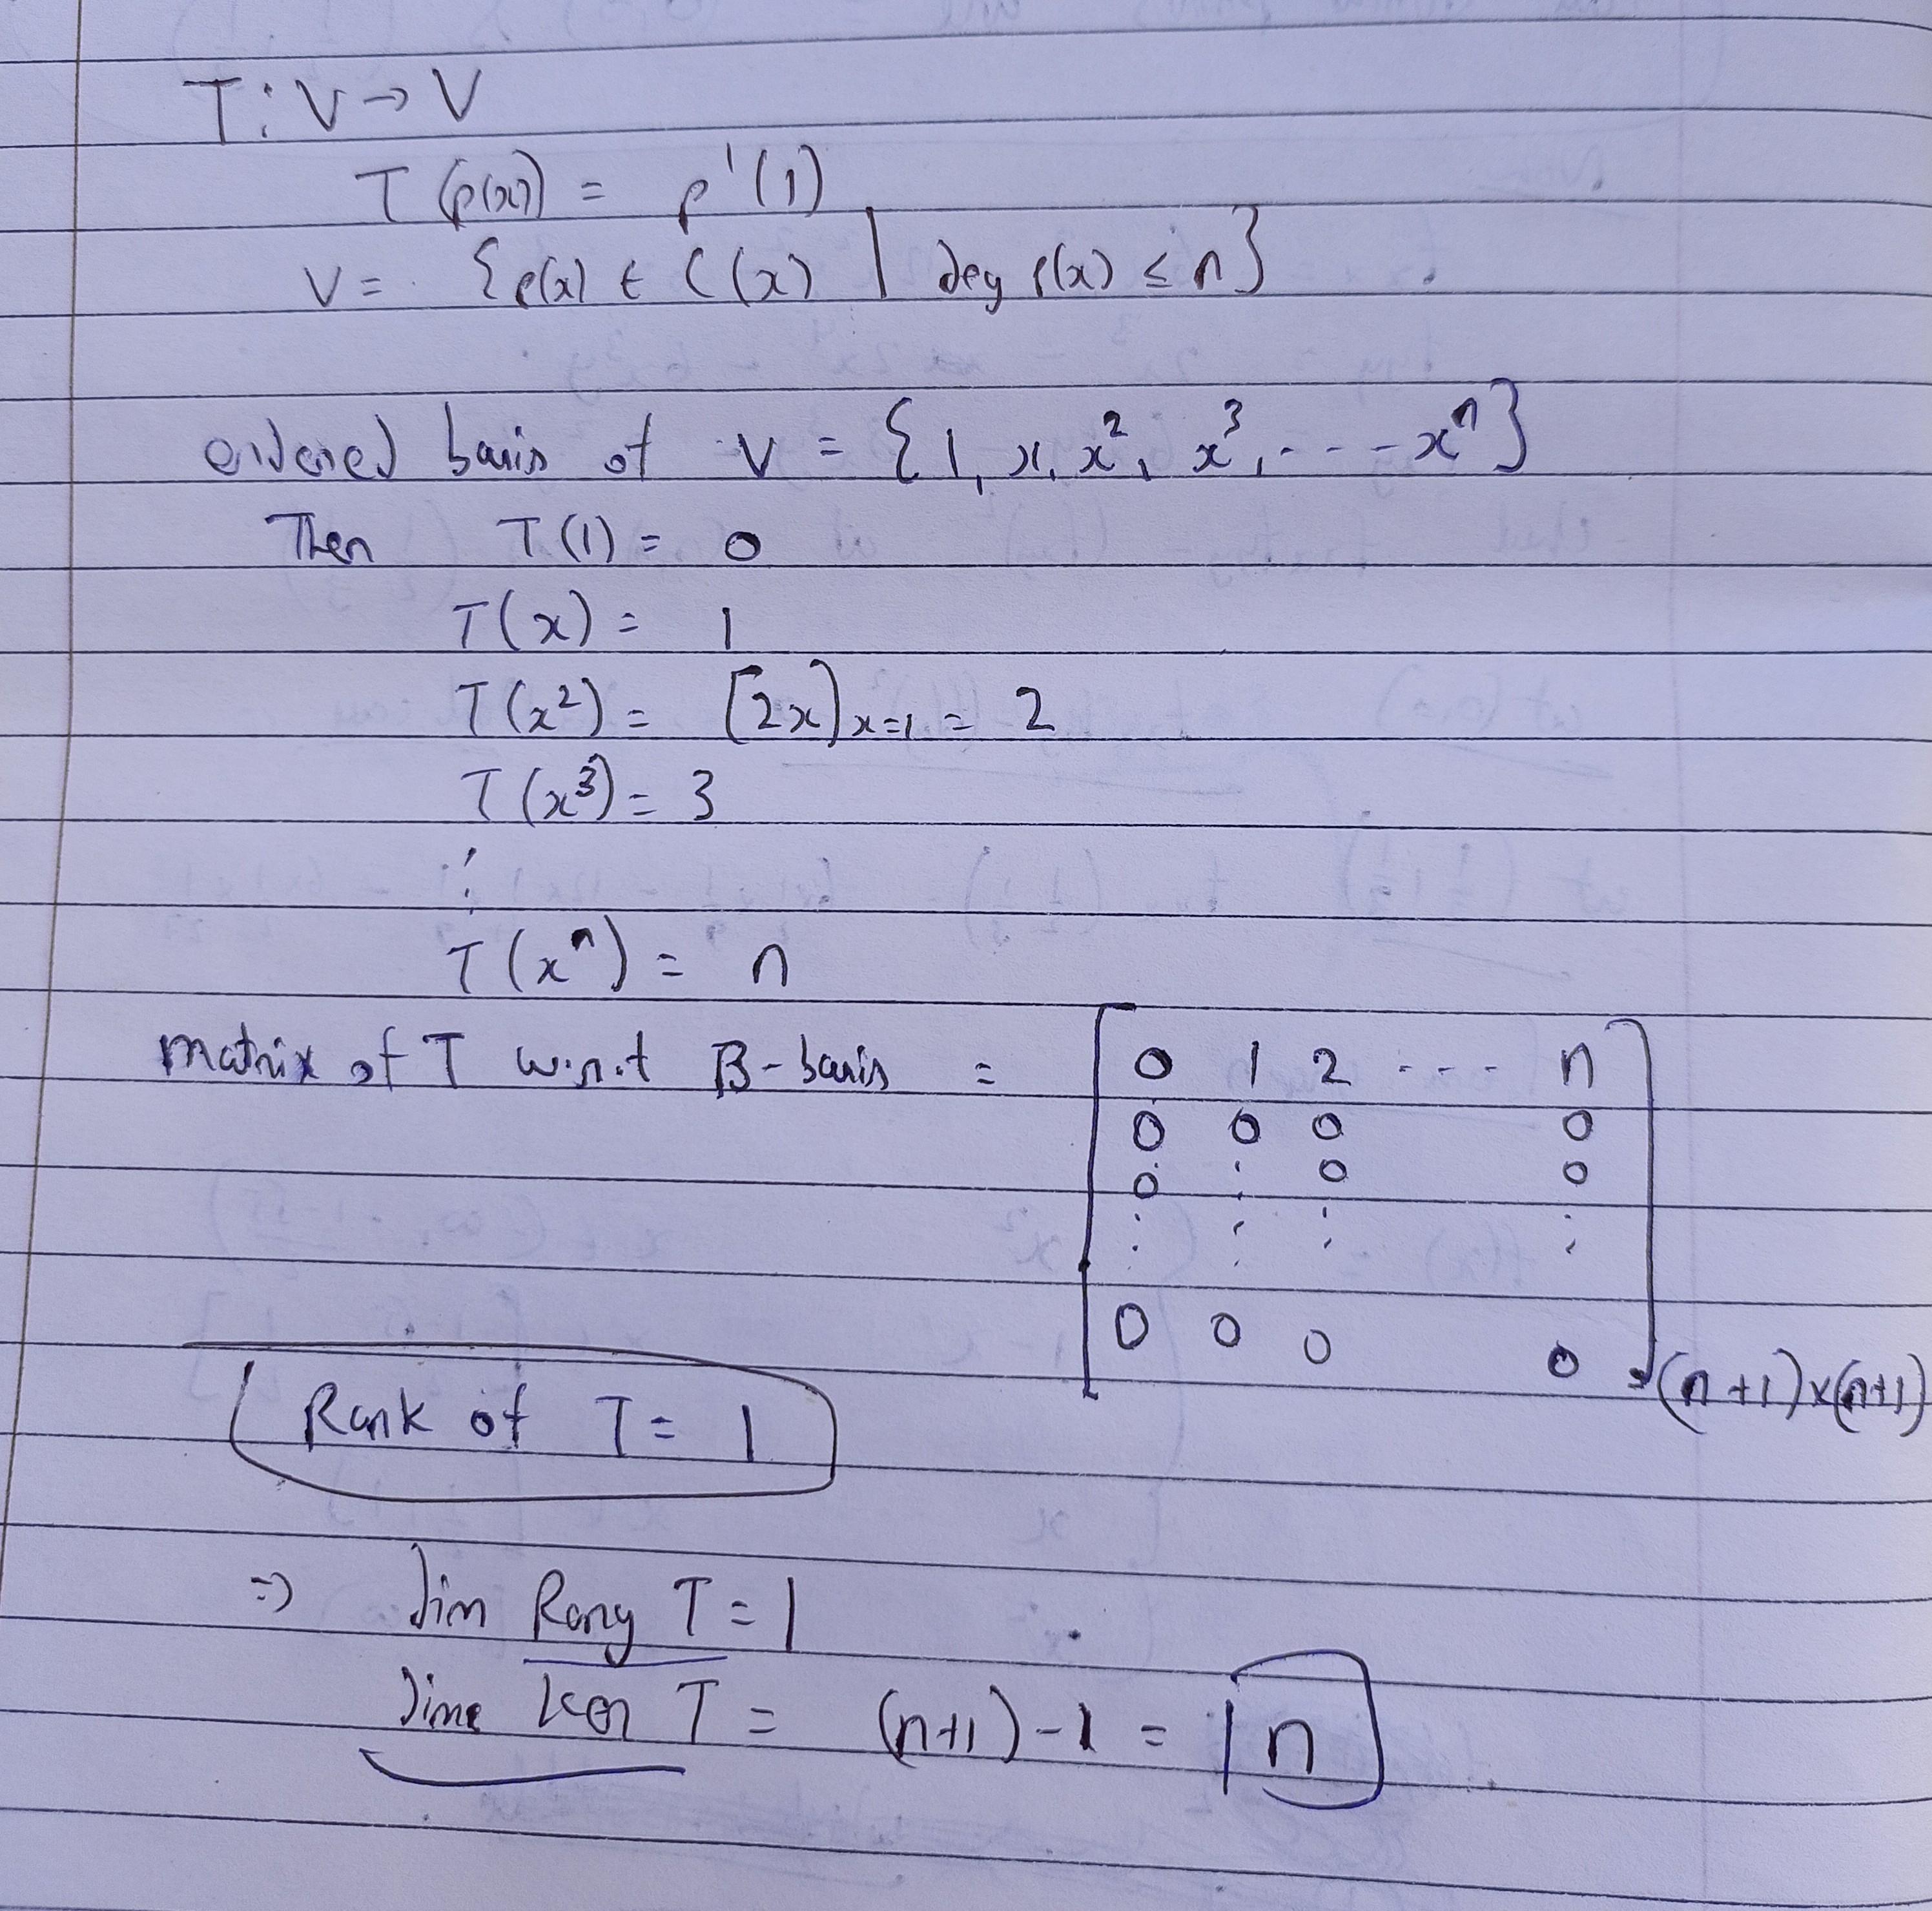 T: V → V
T(p(x)) = p'(1)
V = {p(x) ∈ C(x) | deg p(x) ≤ n}
ordered basis of V = {1, x, x², x³, ---- xⁿ}
Then T(1) = 0
T(x) = 1
T(x²) = [2x]x=1 = 2
T(x³) = 3
⋮
T(xⁿ) = n
matrix of T w.r.t B-basis = [ 0 1 2 ---- n
0 0 0 0
0 ⋮ 0 0
⋮ ⋮ ⋮ ⋮
0 0 0 0 ] (n+1)×(n+1)
Rank of T = 1
⇒ dim Rang T = 1
dime Ker T = (n+1)-1 = n